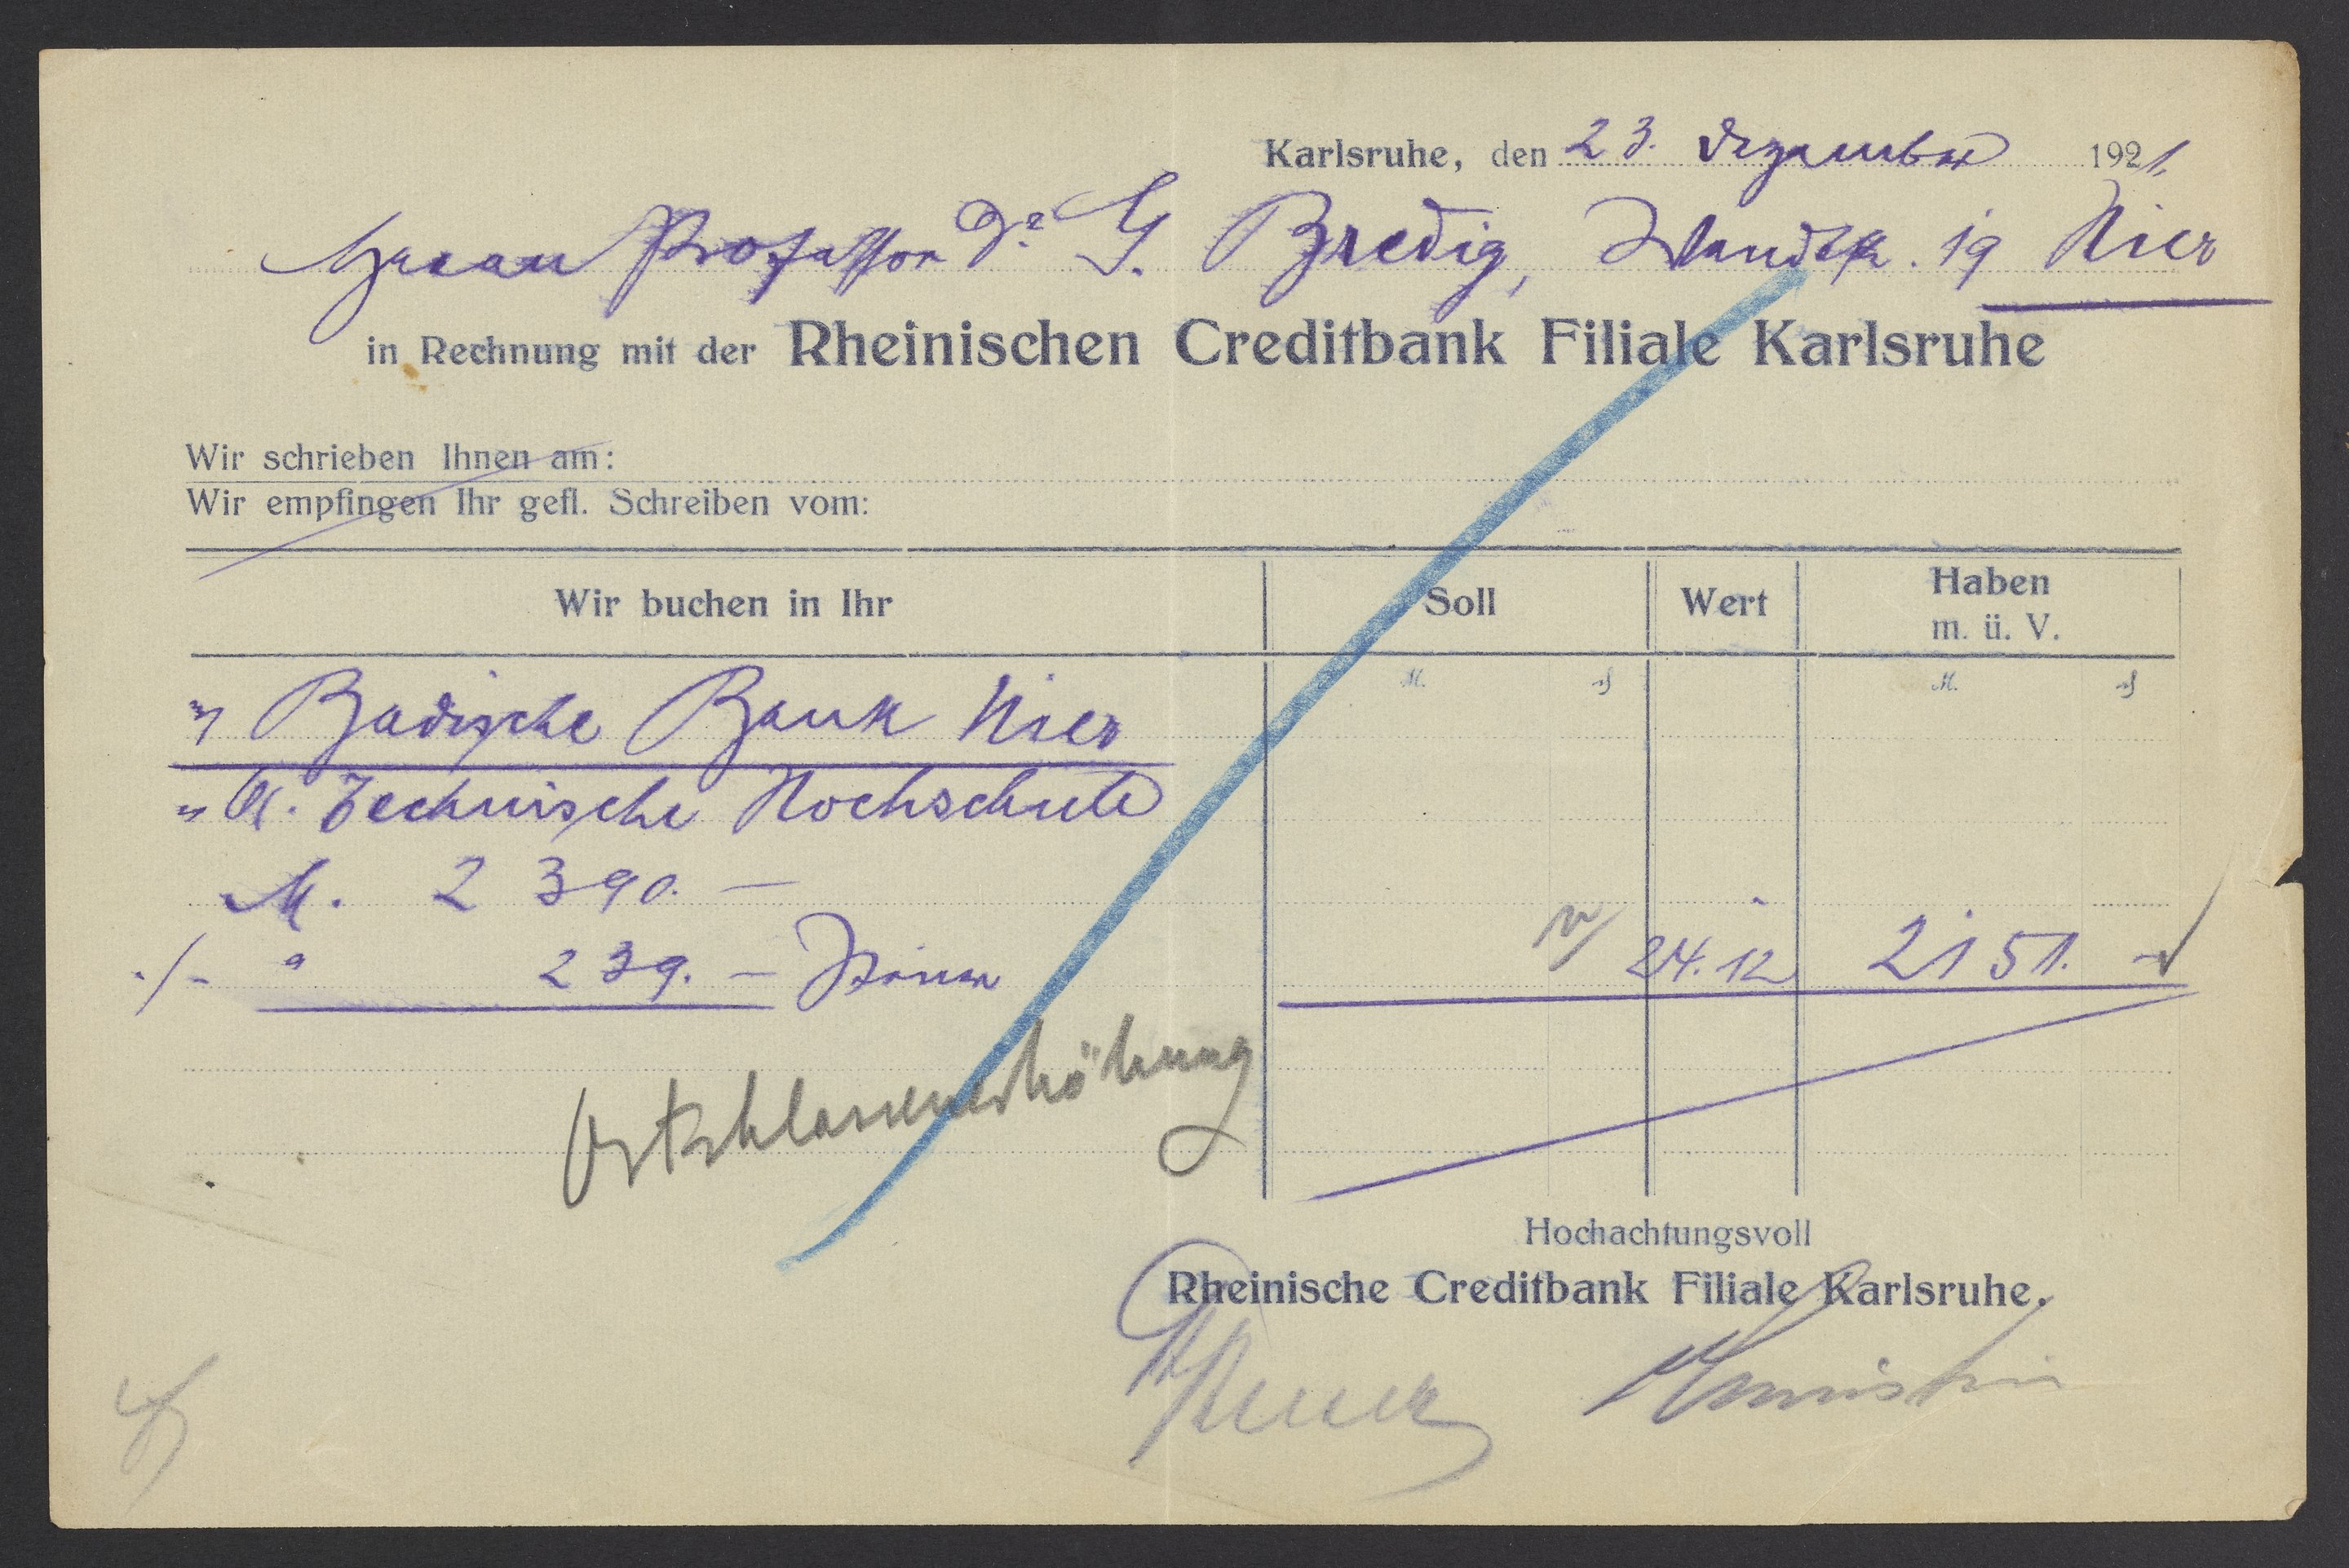 Karlsruhe, den 23. Dezember 1921.
Herrn Professor Dr. G. Bredig, Wendtstr. 19 Hier
in Rechnung mit der Rheinischen Creditbank Filiale Karlsruhe
Wir schrieben Ihnen am:
Wir empfingen Ihr gefl. Schreiben vom:
Wir buchen in Ihr Soll Wert Haben
m. ü. V.
M. ₰ M. ₰
" Badische Bank Hier
" A. Technische Hochschule
M. 2 390. —
./. " 239. — Steuer 24.12 2151. —
Ortsklassenerhöhung
Hochachtungsvoll
Rheinische Creditbank Filiale Karlsruhe.